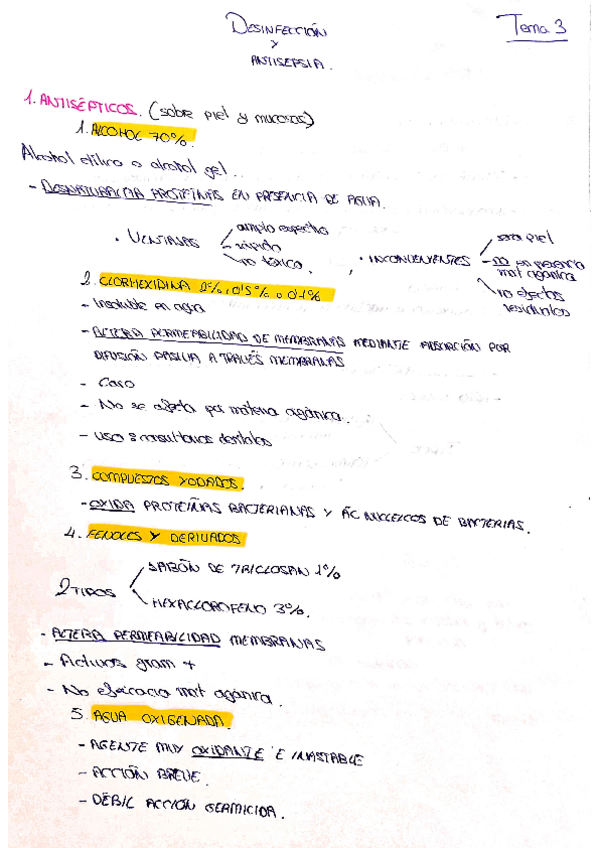 DESINFECCIÓN
Y
ANTISEPSIA.
Tema 3
1. ANTISÉPTICOS. (sobre piel y mucosas)
1. ALCOHOL 70%.
Alcohol etílico o alcohol gel...
- DESNATURALIZA PROTEÍNAS EN PRESENCIA DE AGUA.
• VENTAJAS
amplio espectro
rápido
no tóxico.
• INCONVENIENTES
seca piel
no en presencia mat orgánica
no efectos residuales
2. CLORHEXIDINA 2%, 0'5% o 0'1%
- Insoluble en agua
- ALTERA PERMEABILIDAD DE MEMBRANAS MEDIANTE ABSORCIÓN POR
DIFUSIÓN PASIVA A TRAVÉS MEMBRANAS
- Caro
- No se afecta por materia orgánica.
- uso consultorios dentales
3. COMPUESTOS YODADOS.
- OXIDA PROTEÍNAS BACTERIANAS Y ÁC NUCLEICOS DE BACTERIAS.
4. FENOLES Y DERIVADOS
2 TIPOS
SABÓN DE TRICLOSAN 1%
HEXACLOROFENO 3%.
- ALTERA PERMEABILIDAD MEMBRANAS
- Activos gram +
- No eficacia mat orgánica.
5. AGUA OXIGENADA.
- AGENTE MUY OXIDANTE E INESTABLE
- ACCIÓN BREVE.
- DÉBIL ACCIÓN GERMICIDA.